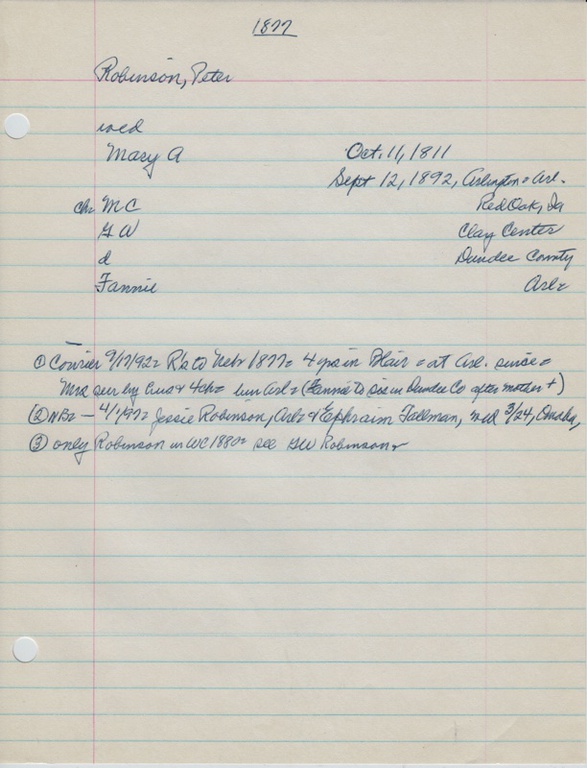 1877
Robinson, Peter
wed
Mary A Oct. 11, 1811
Sept 12, 1892, Arlington = Arl.
ch: MC Red Oak, Ia
GW Clay Center
d Dundee County
Fannie Arl=
① Courier 9/17/92= R's to Nebr 1877= 4 yrs in Blair = at Arl. since =
Mrs sur by & 4 ch= bur Arl = (Fannie to sis in Dundee Co after mother +)
② NB= — 4/1/97= Jessie Robinson, Arl= & Ephraim Tallman, wed 3/24, Omaha,
③ only Robinson in WC 1880= see GW Robinson